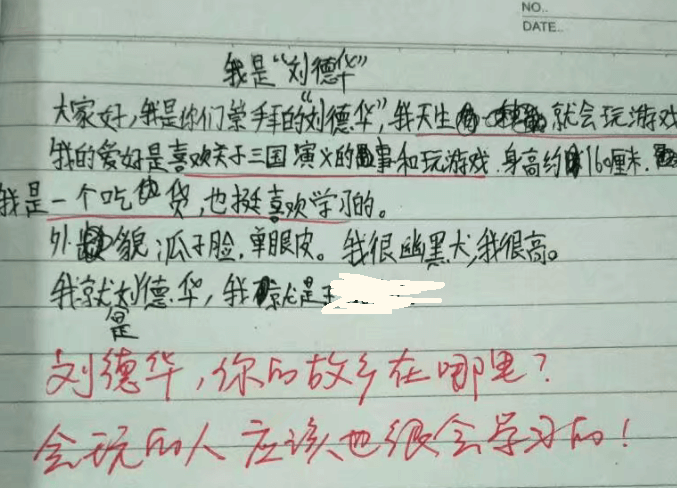 NO..
DATE..
我是“刘德华”
大家好,我是你们崇拜的“刘德华”,我天生就会玩游戏
我的爱好是喜欢关于三国演义的事和玩游戏.身高约160厘米.
我是一个吃货,也挺喜欢学习的。
外貌:瓜子脸,单眼皮。我很幽黑犬,我很高。
我就是刘德华,我就是
刘德华,你的故乡在哪里?
会玩的人应该也很会学习的!